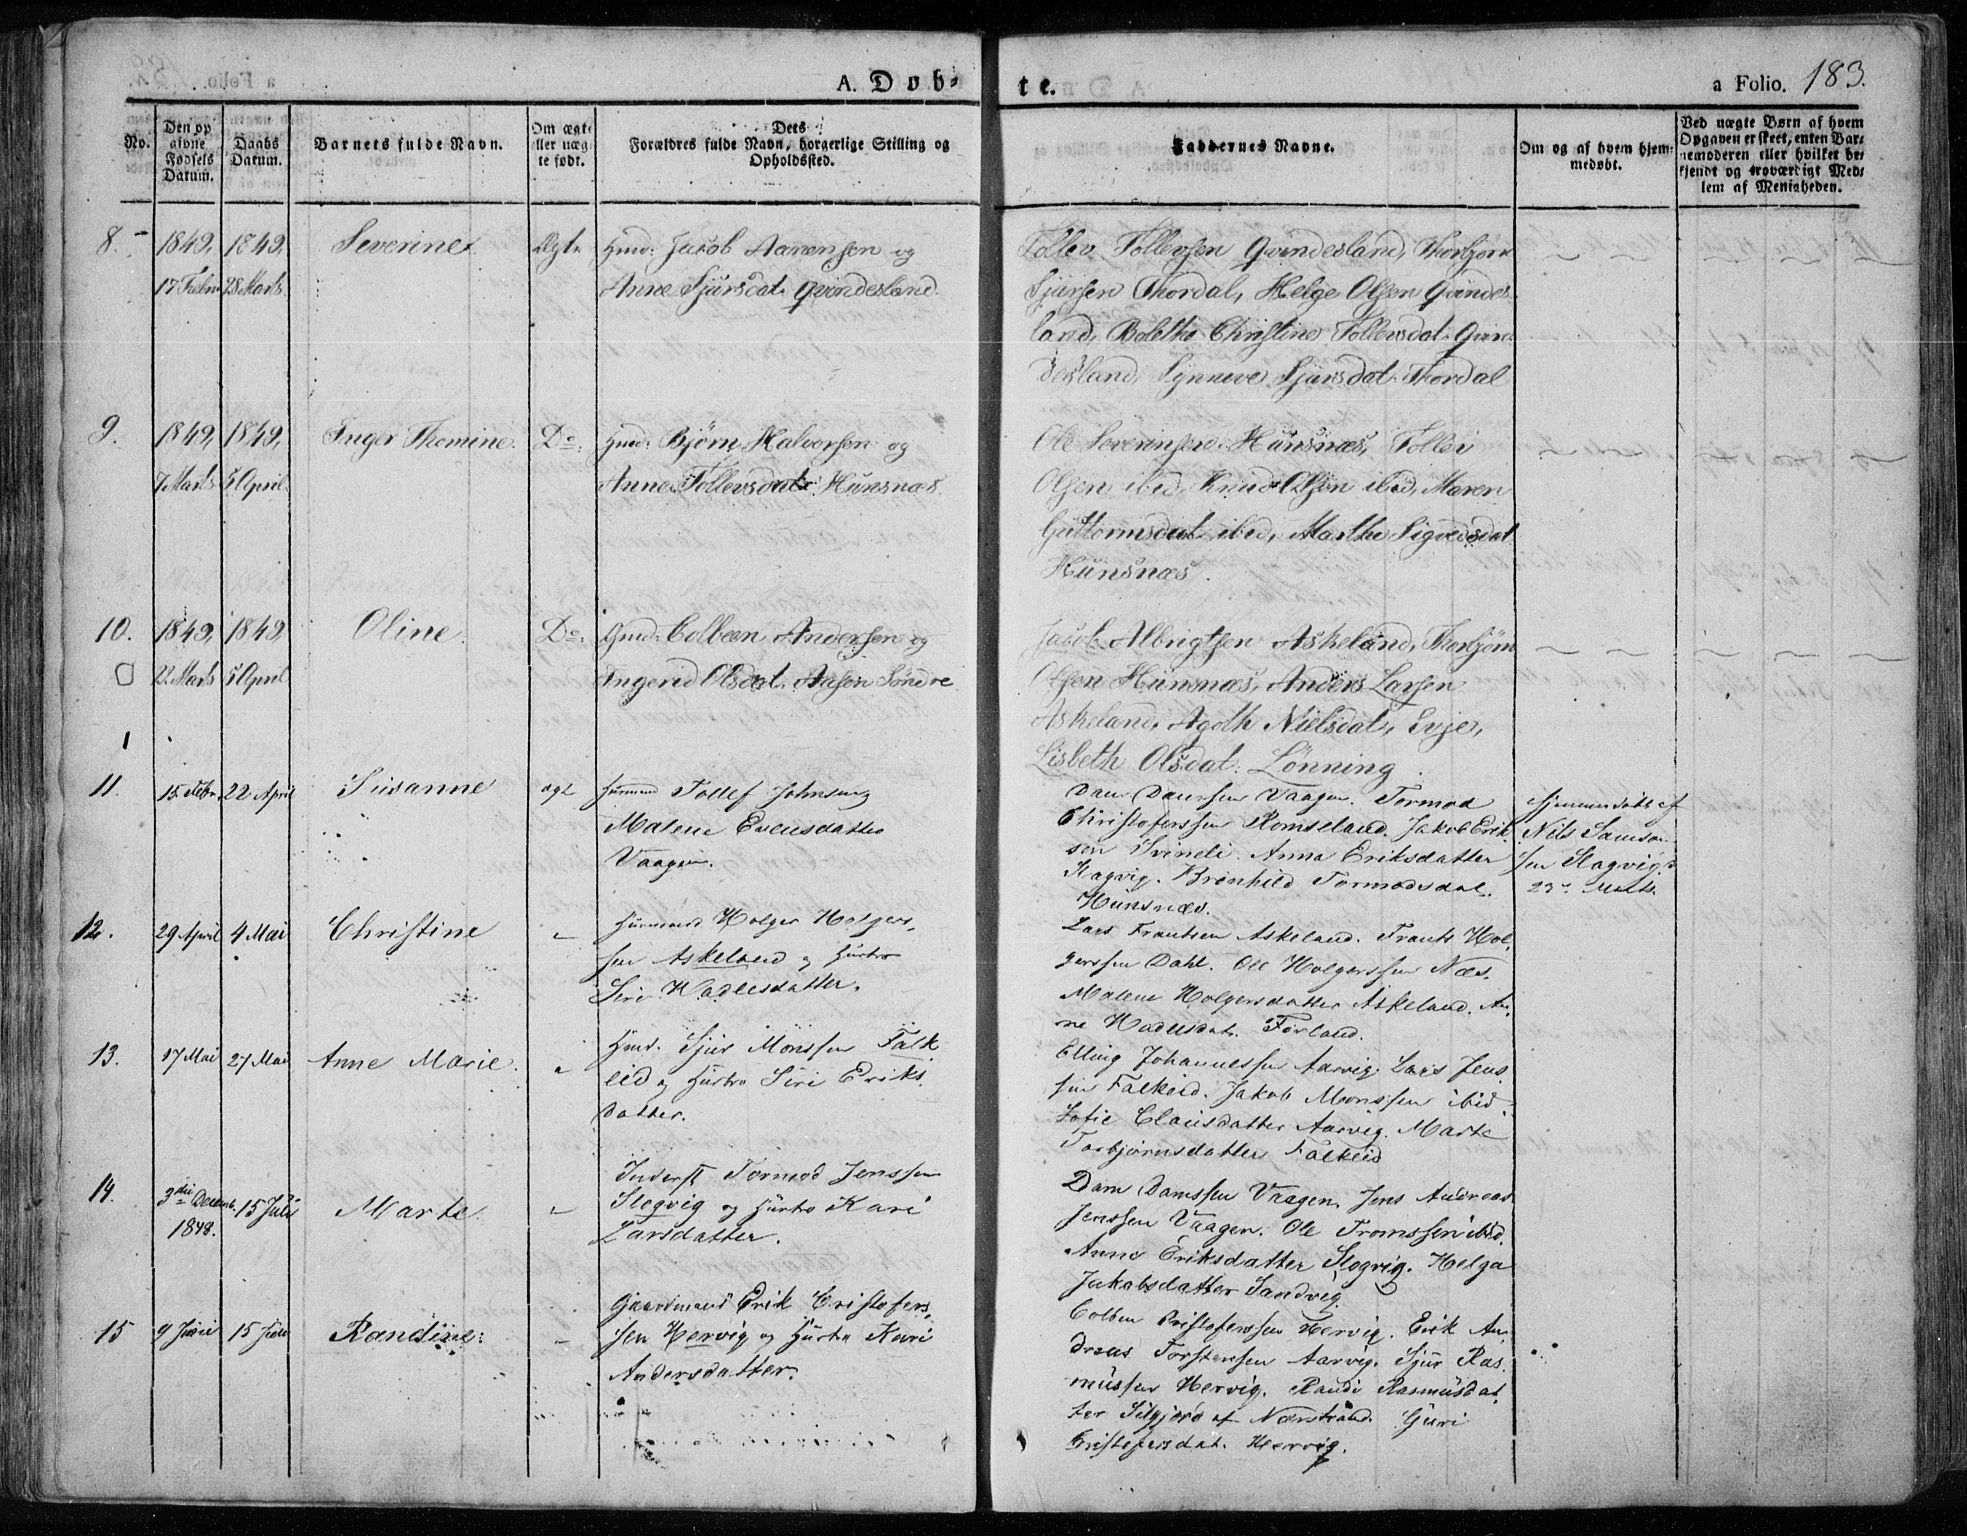 A. Døb-
te.
a Folio. 183.
No.
Den op
givne
Fødsels
Datum.
Daabs
Datum.
Barnets fulde Navn.
Om ægte
eller uæg-
te født.
Dets
Forældres fulde Navn, borgerlige Stilling og
Opholdssted.
Faddernes Navne.
Om og af hvem hjem-
medøbt.
Ved uægte Børn af hvem
Opgaven er skeet, enten Bar-
nemoderen eller hvilket be-
kjendt og troværdigt Med-
lem af Menigheden.
8. 1849, 1849, Severine Ægte Gmd: Jacob Aanensen og
17 Febr 28 Marts Anne Sjursdat. Qvindesland.
Tollev Tollevsen Qvindesland, Thorbjørn
Sjursen Thordal, Helge Olsen Qvindes-
land, Bolethe Christine Tollevsdat. Qvin
desland, Synneve Sjursdat. Thordal
9. 1849, 1849, Inger Thomine. Do: Gmd: Bjørn Halvorsen og
7 Marts 5 April Anne Tollevsdat: Hunsnæs.
Ole Severinsen Hunsnæs, Tollev
Olsen ibid, Knud Olsen ibid, Maren
Guttormsdat. ibid, Marthe Sigvedsdat
Hunsnæs.
10. 1849, 1849, Oline. Do: Gmd: Colbeen Andersen og
22 Marts 5 April Ingerid Olsdat. Aasen Søndre
Jacob Albrigtsen Askeland, Thorbjørn
Olsen Hunsnæs, Anders Larsen
Askeland, Agoth Nielsdat, Evje,
Lisbeth Olsdat: Lønning.
11. 15 Febr. 22 April Susanne ægt Huusmand Tollef Johnsen og
Malene Evensdatter
Vaagen.
Dan Danssen Vaagen. Tormod
Christoferssen Romseland. Jakob Erik
sen Svineli. Anna Eriksdatter
Slogvig. Brønhild Tormodsdat.
Hunsnæs.
Hjemmedøbt af
Nils Samson
sen Slogvig d.
23de Marts.
12. 29 April 4 Mai Christine Huusmand Holger Holgers
sen Askeland og Hustro
Siri Hadlesdatter.
Lars Frantsen Askeland. Frants Hol
gerssen Dahl. Ole Holgerssen Næs.
Malene Holgersdatter Askeland. An
ne Hadlesdat. Førland.
13. 17 Mai 27 Mai Anne Marie. Gmd. Sjur Monssen Falk
eid og Hustro Siri Eriks
datter.
Elling Johannessen Aarvig. Lars Jens
sen Falkeid. Jakob Monssen ibid.
Sofie Clausdatter Aarvig. Marte
Torbjørnsdatter Falkeid
14. 3die Decemb. 15 Juli Marte. Inderst Tormod Jenssen
1848. Slogvig og Hustro Kari
Larsdatter.
Dam Damssen Vaagen. Jens Andreas
Jenssen Vaagen. Ole Tromssen ibid.
Anne Eriksdatter Slogvig. Helga
Jakobsdatter Sandvig.
15 9 Juni 15 Juli Randine: Gaardmand Erik Cristofers
sen Hervig og Hustro Kari
Andersdatter.
Colben Cristoferssen Hervig. Erik An
dreas Torstensen Aarvig. Sjur Ras
mussen Hervig. Randi Rasmusdat
ter Silgjerd af Nærstrand. Guri
Cristofersdat. Hervig.